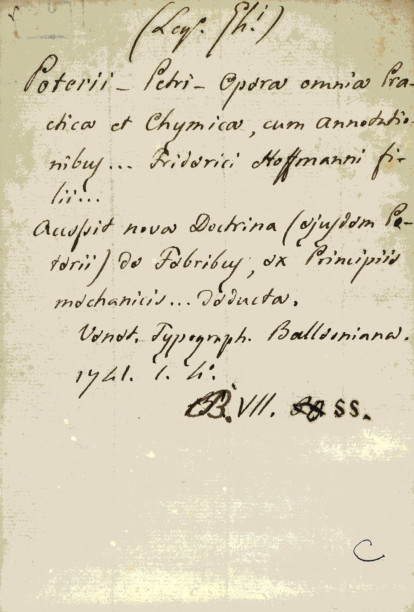 (Leyl. Eh!)
Poterii - Petri - Opera omnia Pra-
ctica et Chymica, cum Annotatio-
nibus... Friderici Hoffmanni fi-
lii...
Accessit nova Doctrina (ejusdem Po-
terii) de Febribus, ex Principiis
mechanicis... deducta.
Venet. Typograph. Balleoniana.
1741. 1. 4º.
B. VII. SS.
C